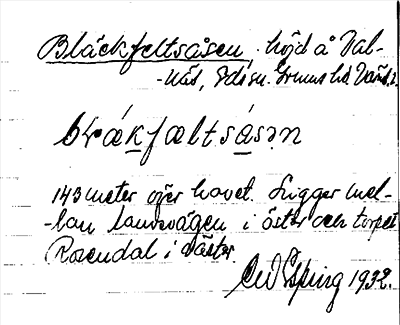 Bläckfeltsåsen, höjd å Val-
-näs, Edsu. Grums hd. Värml.
blǻkfæltsåsən
143 meter över havet. Ligger mel-
-lan landsvägen i öster och torpet
Rosendal i väster.
Esping 1932.